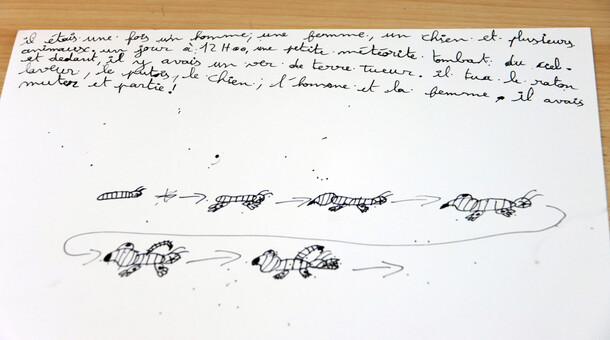 il étais une fois un homme, une femme, un chien et plusieurs
animaux. un jour à 12 H00, une petite météorite tombat du ciel.
et dedant, il y avais un ver de terre tueur. il tua le raton
laveur, le putois, le chien, l'homme et la femme, il avais
muter et partie!